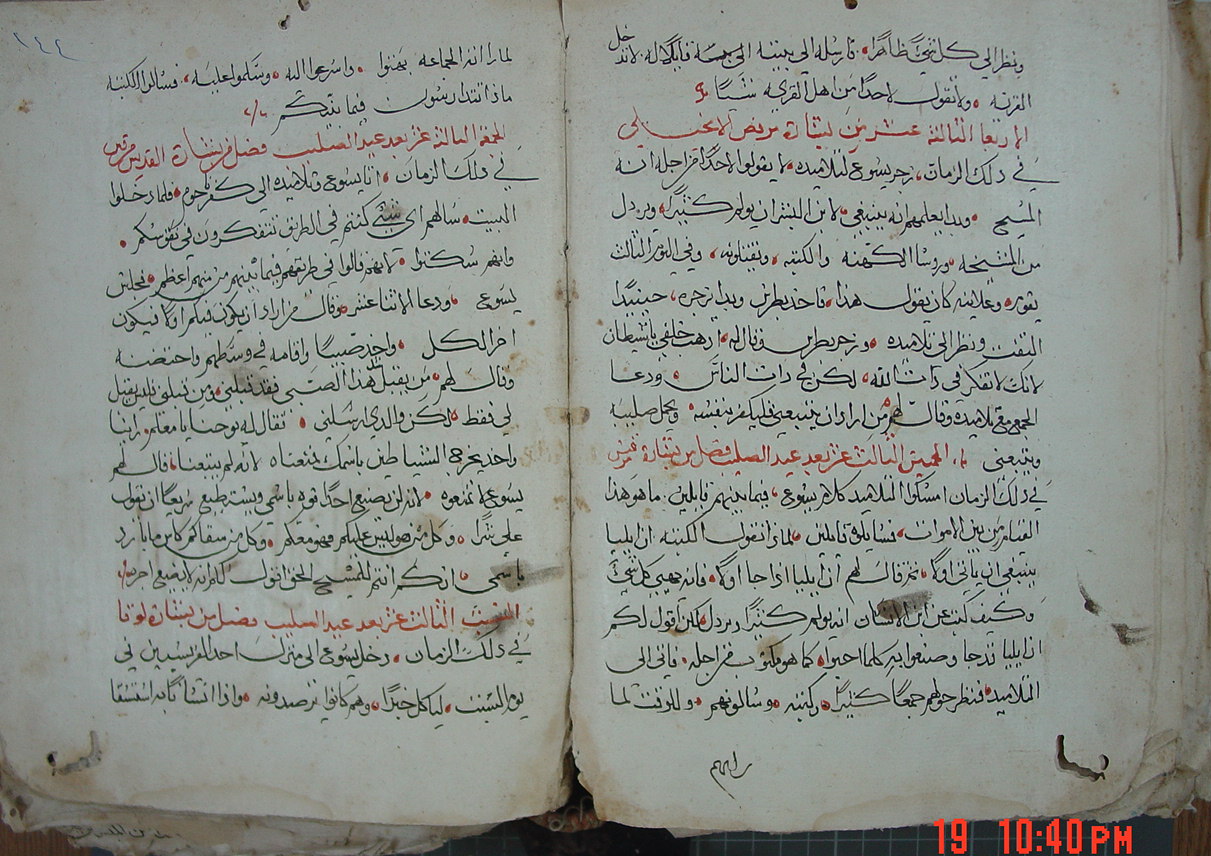 ونظر الي كل شي ظاهرا، فارسله الي بيته قايلا له لا تدخل
القريه، ولا تقول لاحدا من اهل القريه شيا
الاربعا الثالثه عشر من بشارة مرقص الانجيلي
في ذلك الزمان، زجر يسوع لتلاميذه، لا يقولوا لاحدا من اجله انه
المسيح وبدا يعلمهم انه ينبغي، لابن البشر ان يولم كثيرا، ويرذل
من المشيخه، وروسا الكهنه والكتبه، ويقتلونه، وفي اليوم الثالث
يقوم، وعلانيه كان يقول هذا، فاخذ بطرس وبدا يزجره، حينيذا
التفت ونظر الي تلاميذه، وزجر بطرس وقال له، اذهب خلفي يا شيطان
لانك لا تفكر في ذات الله، لكن في ذات الناس، ودعا
الجمع مع تلاميذه وقال لهم، من اراد ان يتبعني فليكفر بنفسه، ويحمل صليبه
ويتبعني الخميس الثالث عشر بعد عيد الصليب فصل من بشارة مرقس
في ذلك الزمان امسكوا التلاميذ كلام يسوع، فيما بينهم قايلين، ما هو هذا
القيام من بين الاموات، فسالوه قايلين، لماذا تقول الكتبه ان ايليا
ينبغي ان ياتي اولا، ثم قال لهم ان ايليا اذا جا اولا، فانه يهيي كل شي
وكيف كتب عن ابن الانسان انه يولم كثيرا ويرذل، لكن اقول لكم
ان ايليا قد جا وصنعوا به كلما احبوا، كما هو مكتوب من اجله، فاتي الي
التلاميذ، فنظر حولهم جمعا كثيرا، وكتبه، وسالونهم، وللوقت لما
راهم
١٤٤
لما راته الجماعه بهتوا، واسرعوا اليه، وسلموا عليه، فسالوا الكتبه
ماذا تتدارسون فيما بينكم
الجمعه الثالثه عشر بعد عيد الصليب فصل من بشارة القديس مرقس
في ذلك الزمان، اتا يسوع وتلاميذه الي كفرناحوم، فلما دخلوا
البيت، سالهم اي شي كنتم في الطريق تتفكرون في نفوسكم،
وانهم سكتوا، لانهم قالوا في طريقهم فيما بينهم من منهم اعظم، فجلس
يسوع، ودعا الاثنا عشر، وقال من اراد ان يكون فيكم اولا فيكون
اخر الكل، واخذ صبيا واقامه في وسطهم واحتضنه
وقال لهم، من يقبل مثل هذا الصبي فقد قبلني، ومن قبلني فليس يقبل
لي فقط، لكن والذي ارسلني، فقال له يوحنا يا معلم، راينا
واحد يخرج الشياطين باسمك فمنعناه لانه لم يتبعنا، قال لهم
يسوع لا تمنعوه، لانه لن يصنع احدا قوه باسمي ويستطيع سريعا ان يقول
علي شرا، وكل من هو ليس عليكم فهو معكم، وكل من سقاكم كاس ما بارد
باسمي، انكم انتم للمسيح الحق اقول لكم انه لا يضيع اجره
السبت الثالث عشر بعد عيد الصليب فصل من بشارة لوقا
في ذلك الزمان، دخل يسوع الي منزل احد الفريسيين في
يوم السبت، لياكل خبزا، وهم كانوا يرصدونه، واذا انسانا به استسقا
19 10:40 PM